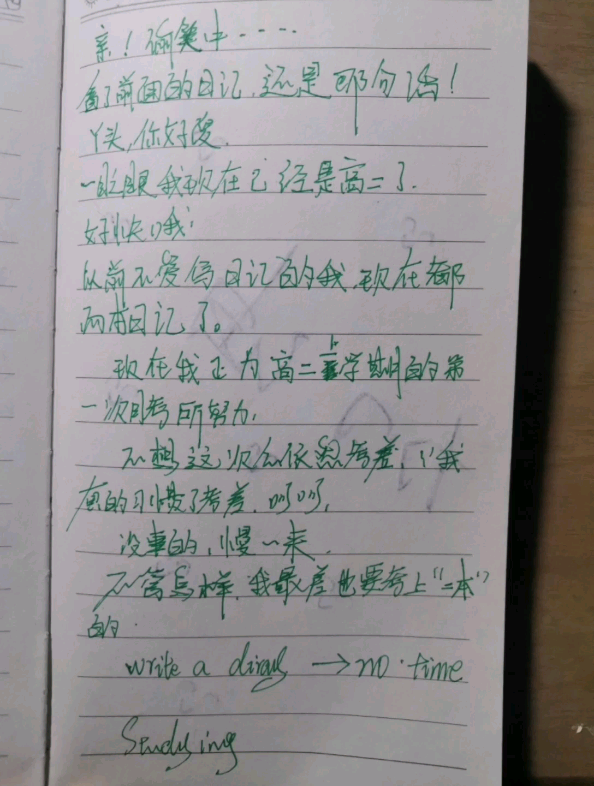 亲！偷笑中····
看了前面的日记,还是那句话！
丫头,你好傻.
一眨眼我现在已经是高二了.
好快哦!
以前不爱写日记的我,现在都
两本日记了。
现在我正为高二上学期的第
一次月考所努力.
不想这次么依然考差,我
真的习惯了考差,呵呵,
没事的,慢一来.
不管怎样,我最差也要考上“二本”
的.
write a diray → no time
Studying